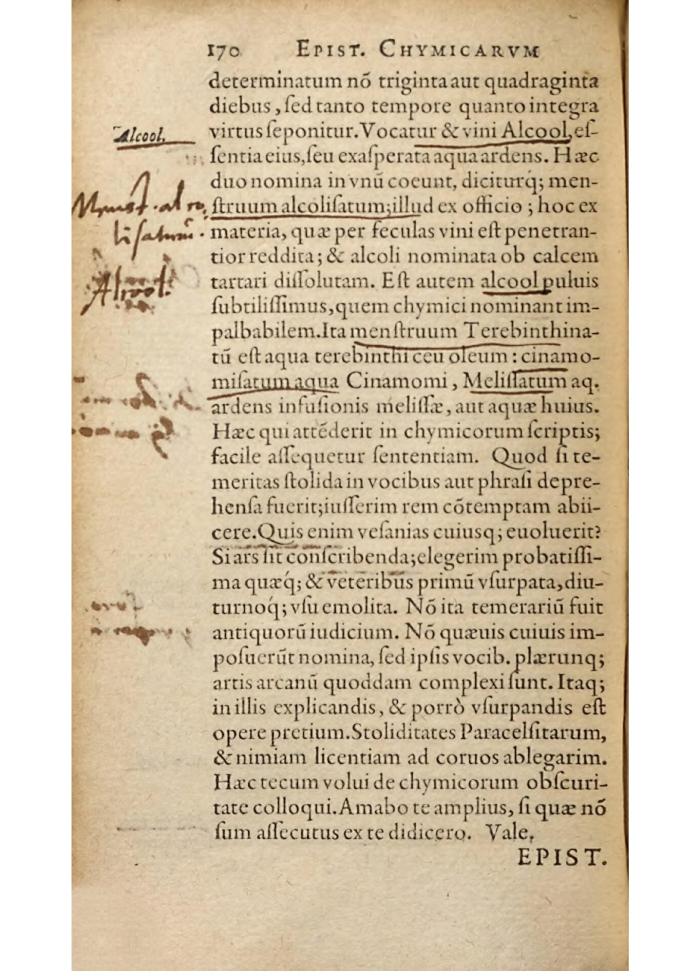 170 EPIST. CHYMICARVM
determinatum nõ triginta aut quadraginta
diebus, ſed tanto tempore quanto integra
Alcool.
virtus ſeponitur. Vocatur & vini Alcool, eſ-
ſentia eius, ſeu exaſperata aqua ardens. Hæc
duo nomina in vnũ coeunt, diciturq́; men-
ſtruum alcoliſatum; illud ex officio; hoc ex
materia, quæ per feculas vini eſt penetran-
tior reddita; & alcoli nominata ob calcem
tartari diſſolutam. Eſt autem alcool puluis
Alcool.
ſubtiliſſimus, quem chymici nominant im-
palbabilem. Ita menſtruum Terebinthina-
tũ eſt aqua terebinthi ceu oleum: cinamo-
miſatum aqua Cinamomi, Meliſſatum aq.
ardens infuſionis meliſſæ, aut aquæ huius.
Hæc qui attẽderit in chymicorum ſcriptis;
facile aſſequetur ſententiam. Quod ſi te-
meritas ſtolida in vocibus aut phraſi depre-
henſa fuerit; iuſſerim rem cõtemptam abii-
cere. Quis enim veſanias cuiusq; euoluerit?
Si ars ſit conſcribenda; elegerim probatiſſi-
ma quæq́; & veteribus primũ vſurpata, diu-
turnoq́; vſu emolita. Nõ ita temerariũ fuit
antiquorũ iudicium. Nõ quæuis cuiuis im-
poſuerũt nomina, ſed ipſis vocib. plærunq;
artis arcanũ quoddam complexi ſunt. Itaq;
in illis explicandis, & porrò vſurpandis eſt
opere pretium. Stoliditates Paracelſitarum,
& nimiam licentiam ad coruos ablegarim.
Hæc tecum volui de chymicorum obſcuri-
tate colloqui. Amabo te amplius, ſi quæ nõ
ſum aſſecutus ex te didicero. Vale.
EPIST.